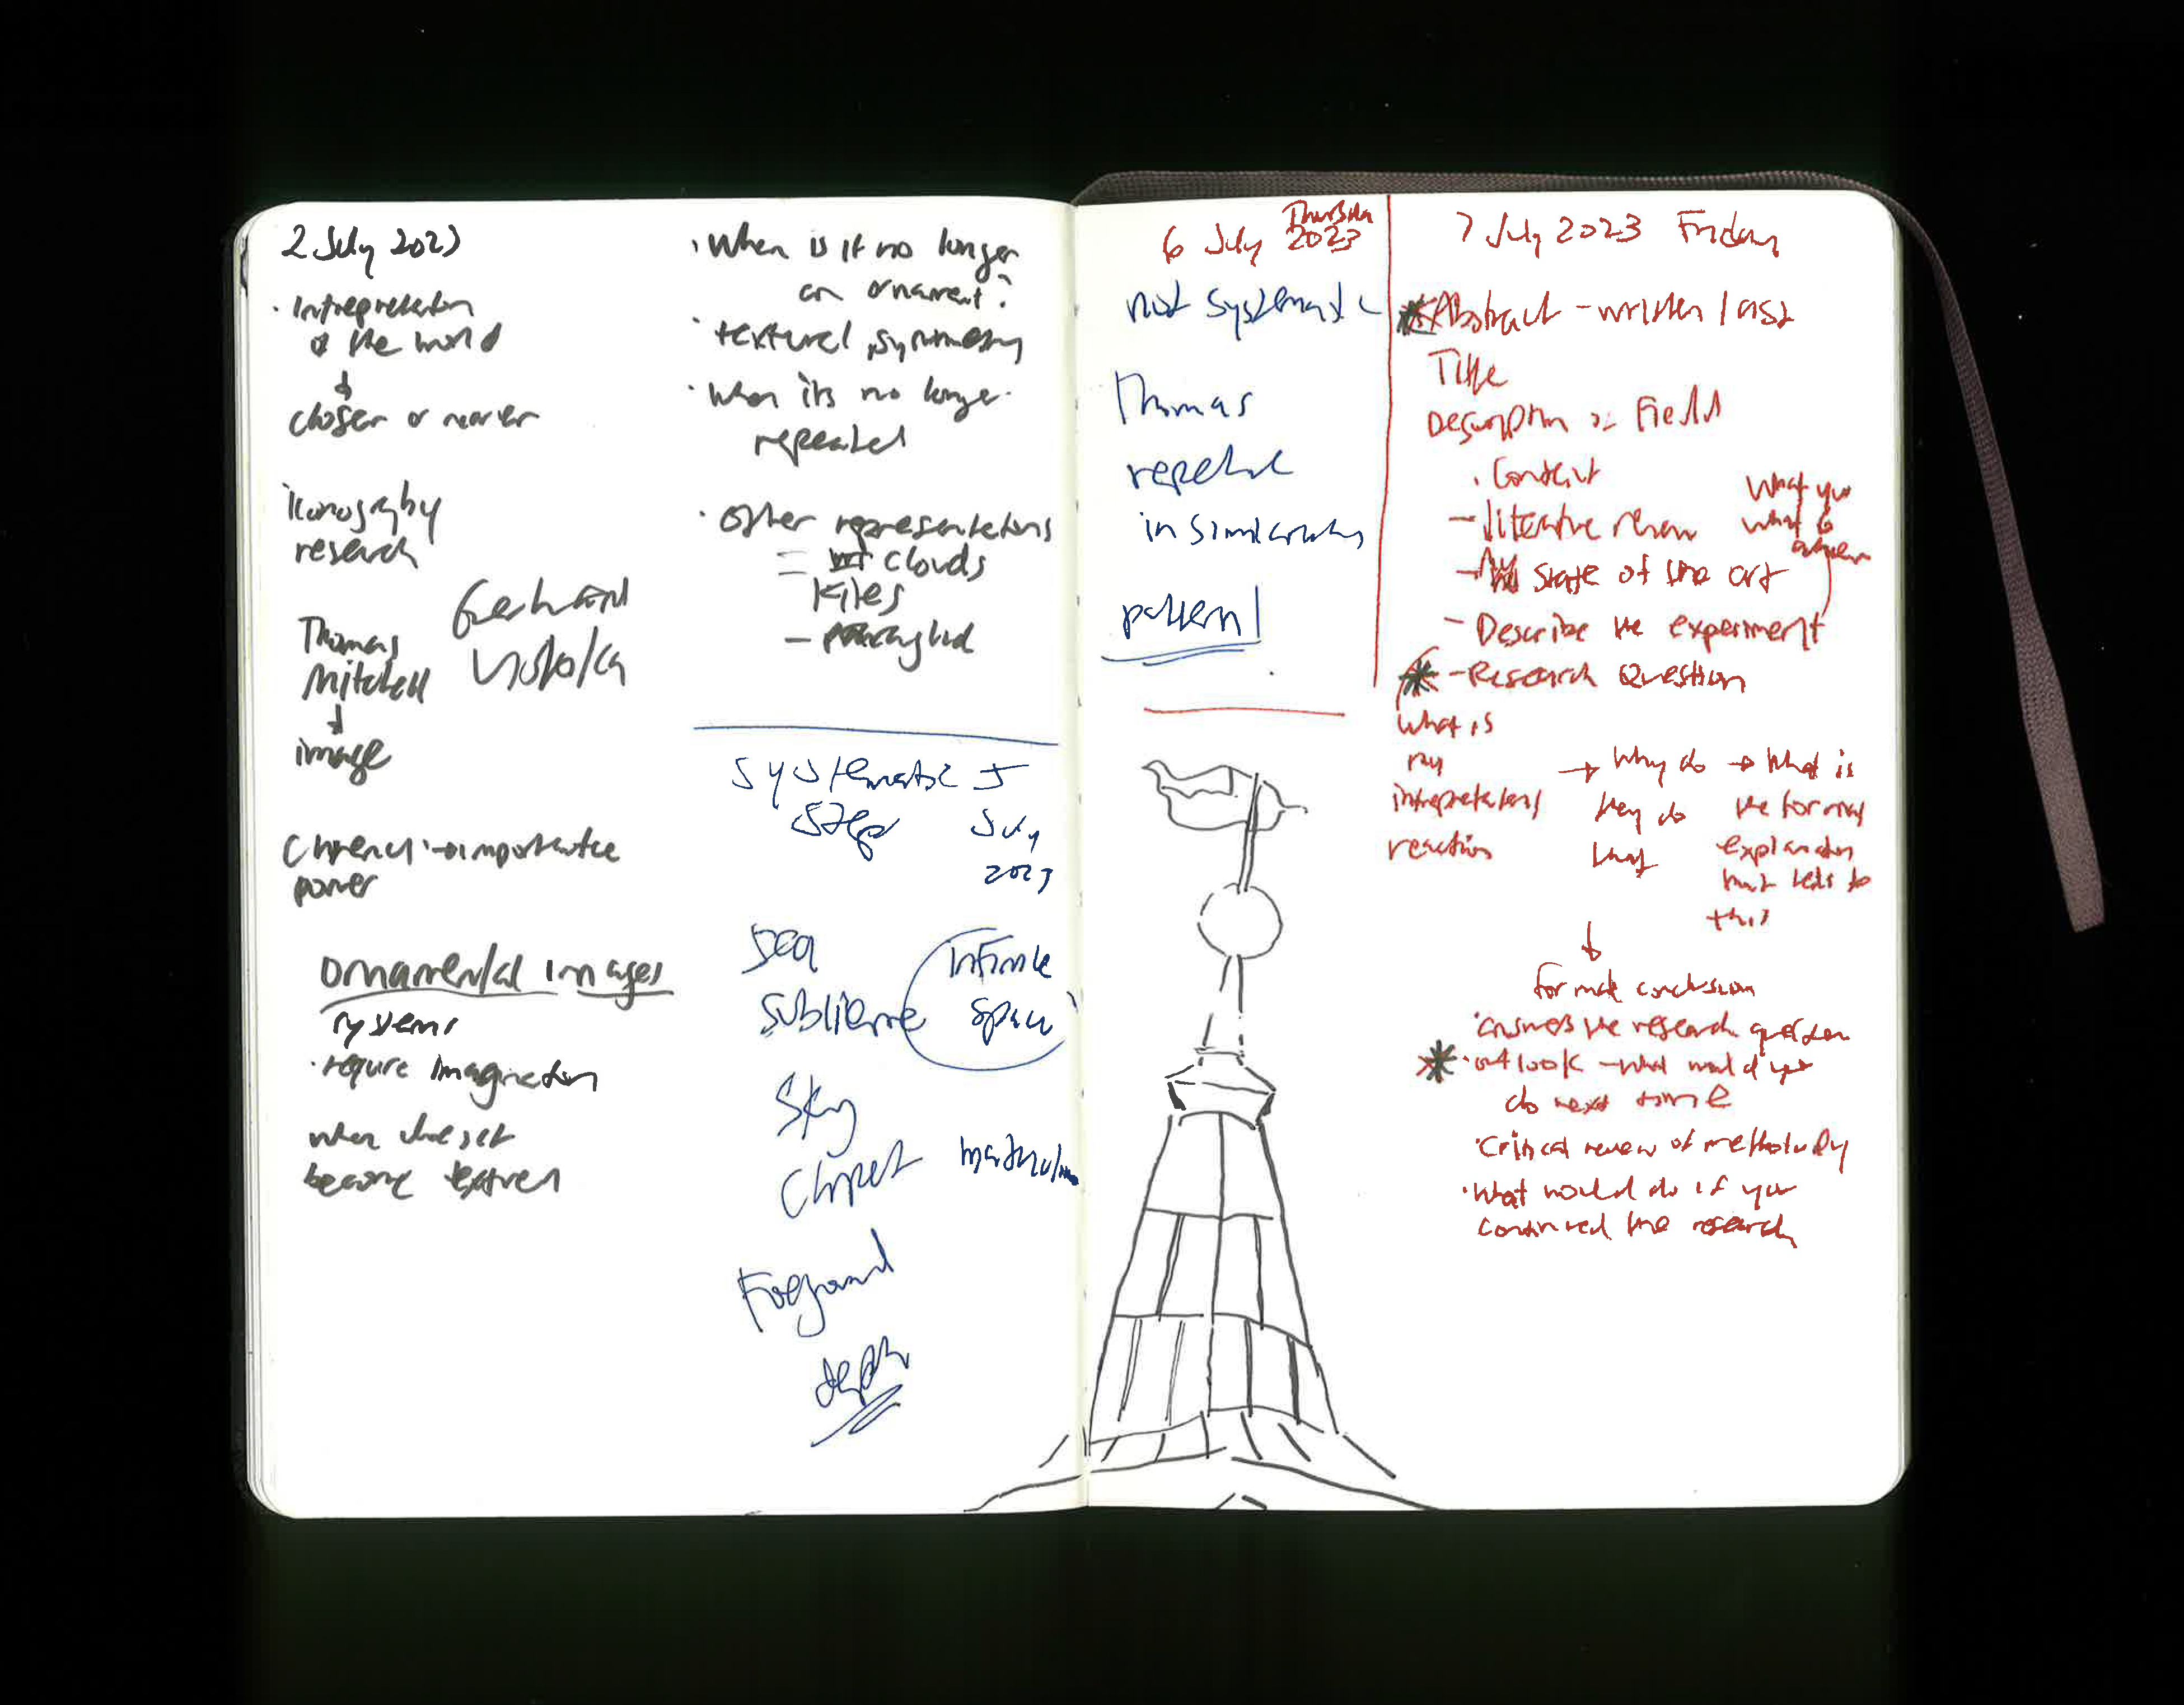 2 July 2023
· Intrepretation
of the world
closer or nearer
iconography
research
Thomas
Mitchell
image
Gerhard
power
ornamental images
systems
· require imagination
when
become
· When is it no longer
an ornament?
· textural symmetry
· When its no longer
repeated
· other representations
= clouds
kites
systematic 5
step July
2023
sea
sublieme
infinite
space
Sky
depth
6 July Thursday
2023
not systematic
Thomas
in
pattern
7 July 2023 Friday
Abstract - written last
Title
Description of Field
· Context
- literature review
- state of the art
- Describe the experiment
- Research Question
What you
what is
What is
my
intrepretation/
reaction
→ Why do
they do
that
→ What is
the formal
explanation
that leads to
this
formal conclusion
· answers the research question
· outlook - what would you
do next time
· Critical review of methodology
· What would do if you
continued the research